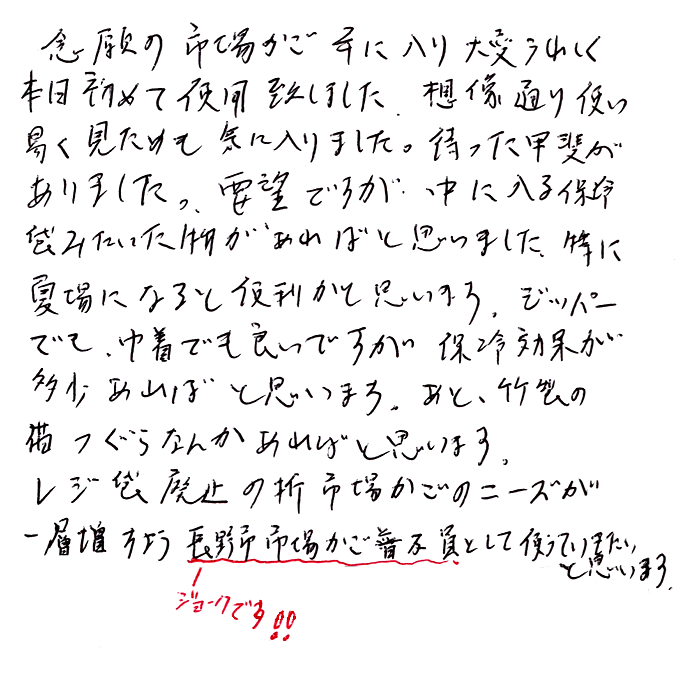 念願の市場かご手に入り大変うれしく
本日初めて使用致しました。想像通り使い
易く見ためも気に入りました。待った甲斐が
ありました。要望ですが、中に入る保冷
袋みたいた物があればと思いました。特に
夏場になると便利かと思います。ジッパー
でも、巾着でも良いですが、保冷効果が
多少あればと思います。あと、竹製の
猫つぐらなんかあればと思います。
レジ袋廃止の折市場かごのニーズが
一層増すよう長野市市場かご普及員として使っていきたい
と思います。
ジョークです!!